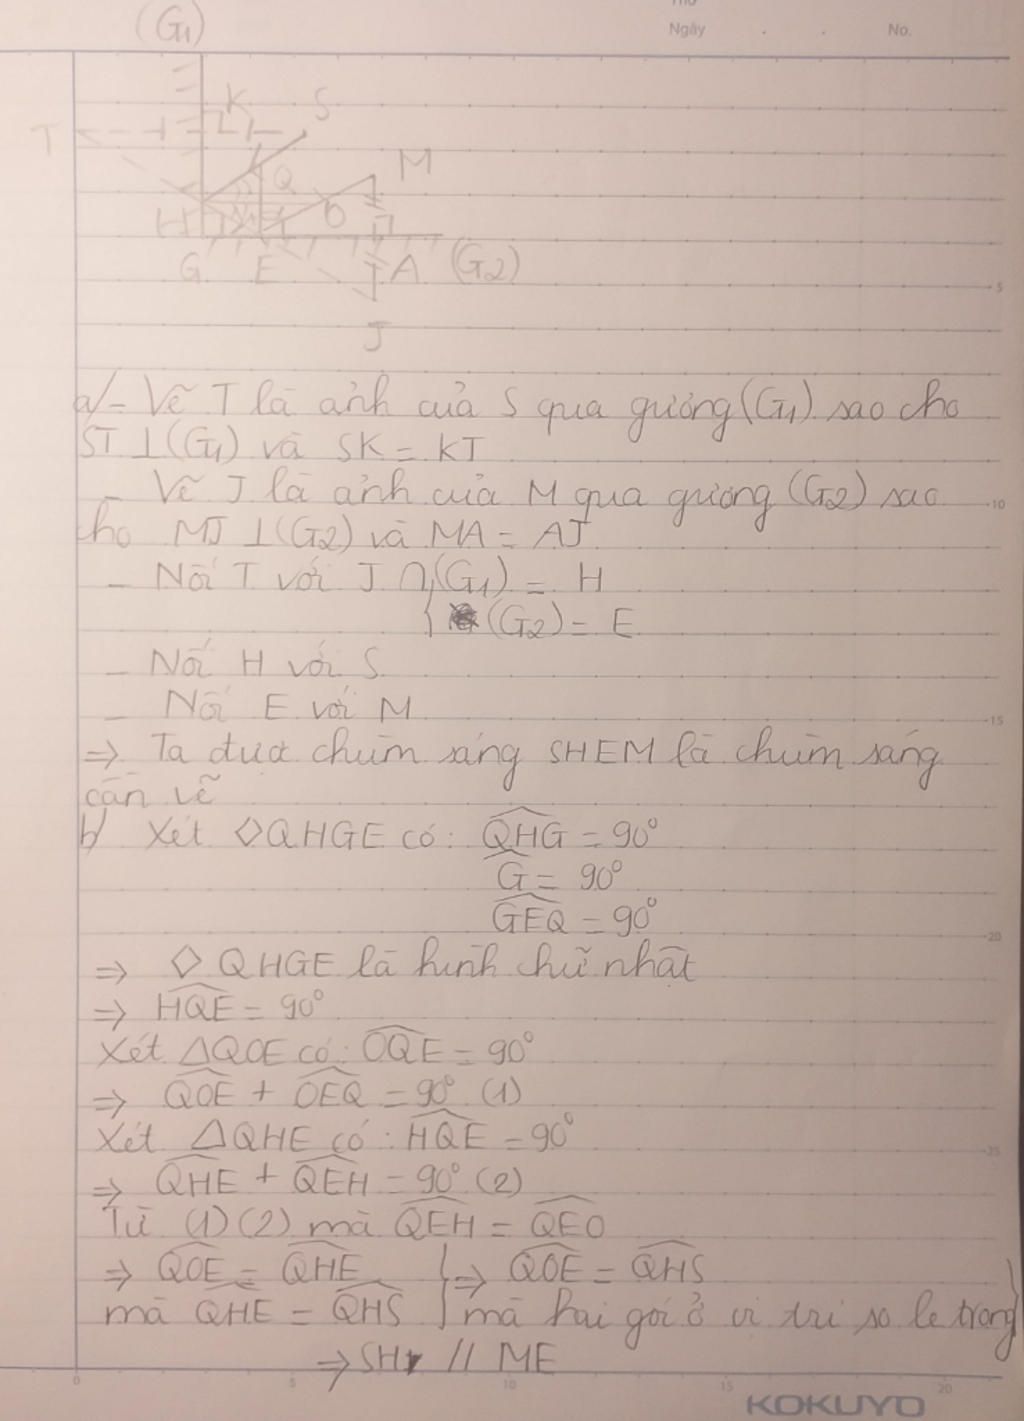 Thứ
Ngày . . No.
(G1)
K S
T
M
Q
H O
G E A (G2)
J
a/- Vẽ T là ảnh của S qua gương (G1) sao cho
ST ⊥ (G1) và SK = KT
- Vẽ J là ảnh của M qua gương (G2) sao
cho MJ ⊥ (G2) và MA = AJ
- Nối T với J ∩ (G1) = H
(G2) = E
- Nối H với S
- Nối E với M
=> Ta được chùm sáng SHEM là chùm sáng
cần vẽ
b/ Xét ◇QHGE có: QHG = 90°
G = 90°
GEQ = 90°
=> ◇QHGE là hình chữ nhật
=> HQE = 90°
Xét △QOE có: OQE = 90°
=> QOE + OEQ = 90° (1)
Xét △QHE có: HQE = 90°
=> QHE + QEH = 90° (2)
Từ (1)(2) mà QEH = QEO
=> QOE = QHE } => QOE = QHS
mà QHE = QHS } mà hai gói ở vị trí so le trong
=> SH // ME
0 5 10 15 20
KOKUYO